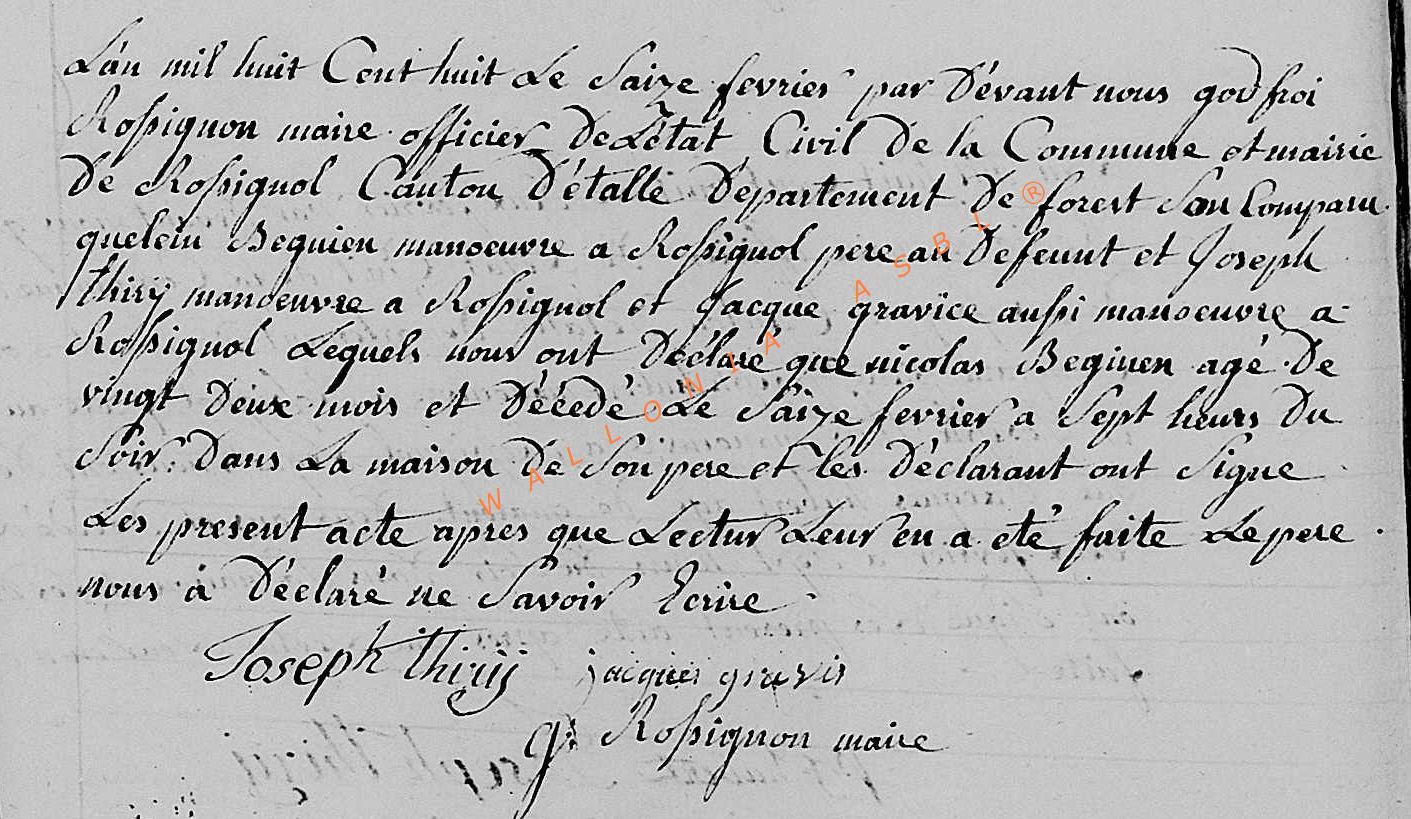 L'an mil huit Cent huit Le Saize fevrier par Dévant nous godfroi
Rossignon maire officier De L'état Civil De la Commune et mairie
De Rossignol Canton D'étalle Departement De forest Son Comparu
quelein Beguien manoeuvre a Rossignol pere au Defeunt et Joseph
thiry manoeuvre a Rossignol et Jacque gravice aussi manoeuvre a
Rossignol Lequels nous ont Déclaré que nicolas Beginen agé De
vingt Deux mois et Décedé Le Saize fevrier a Sept heurs Du
Soir Dans La maison De Son pere et les Déclarant ont Signe
Les present acte apres que Lectur Leur en a eté faite Le pere
nous à Déclaré ne Savoir Ecrire
Joseph thiry jacques gravis
g: Rossignon maire
WALLONIA ASBL ®